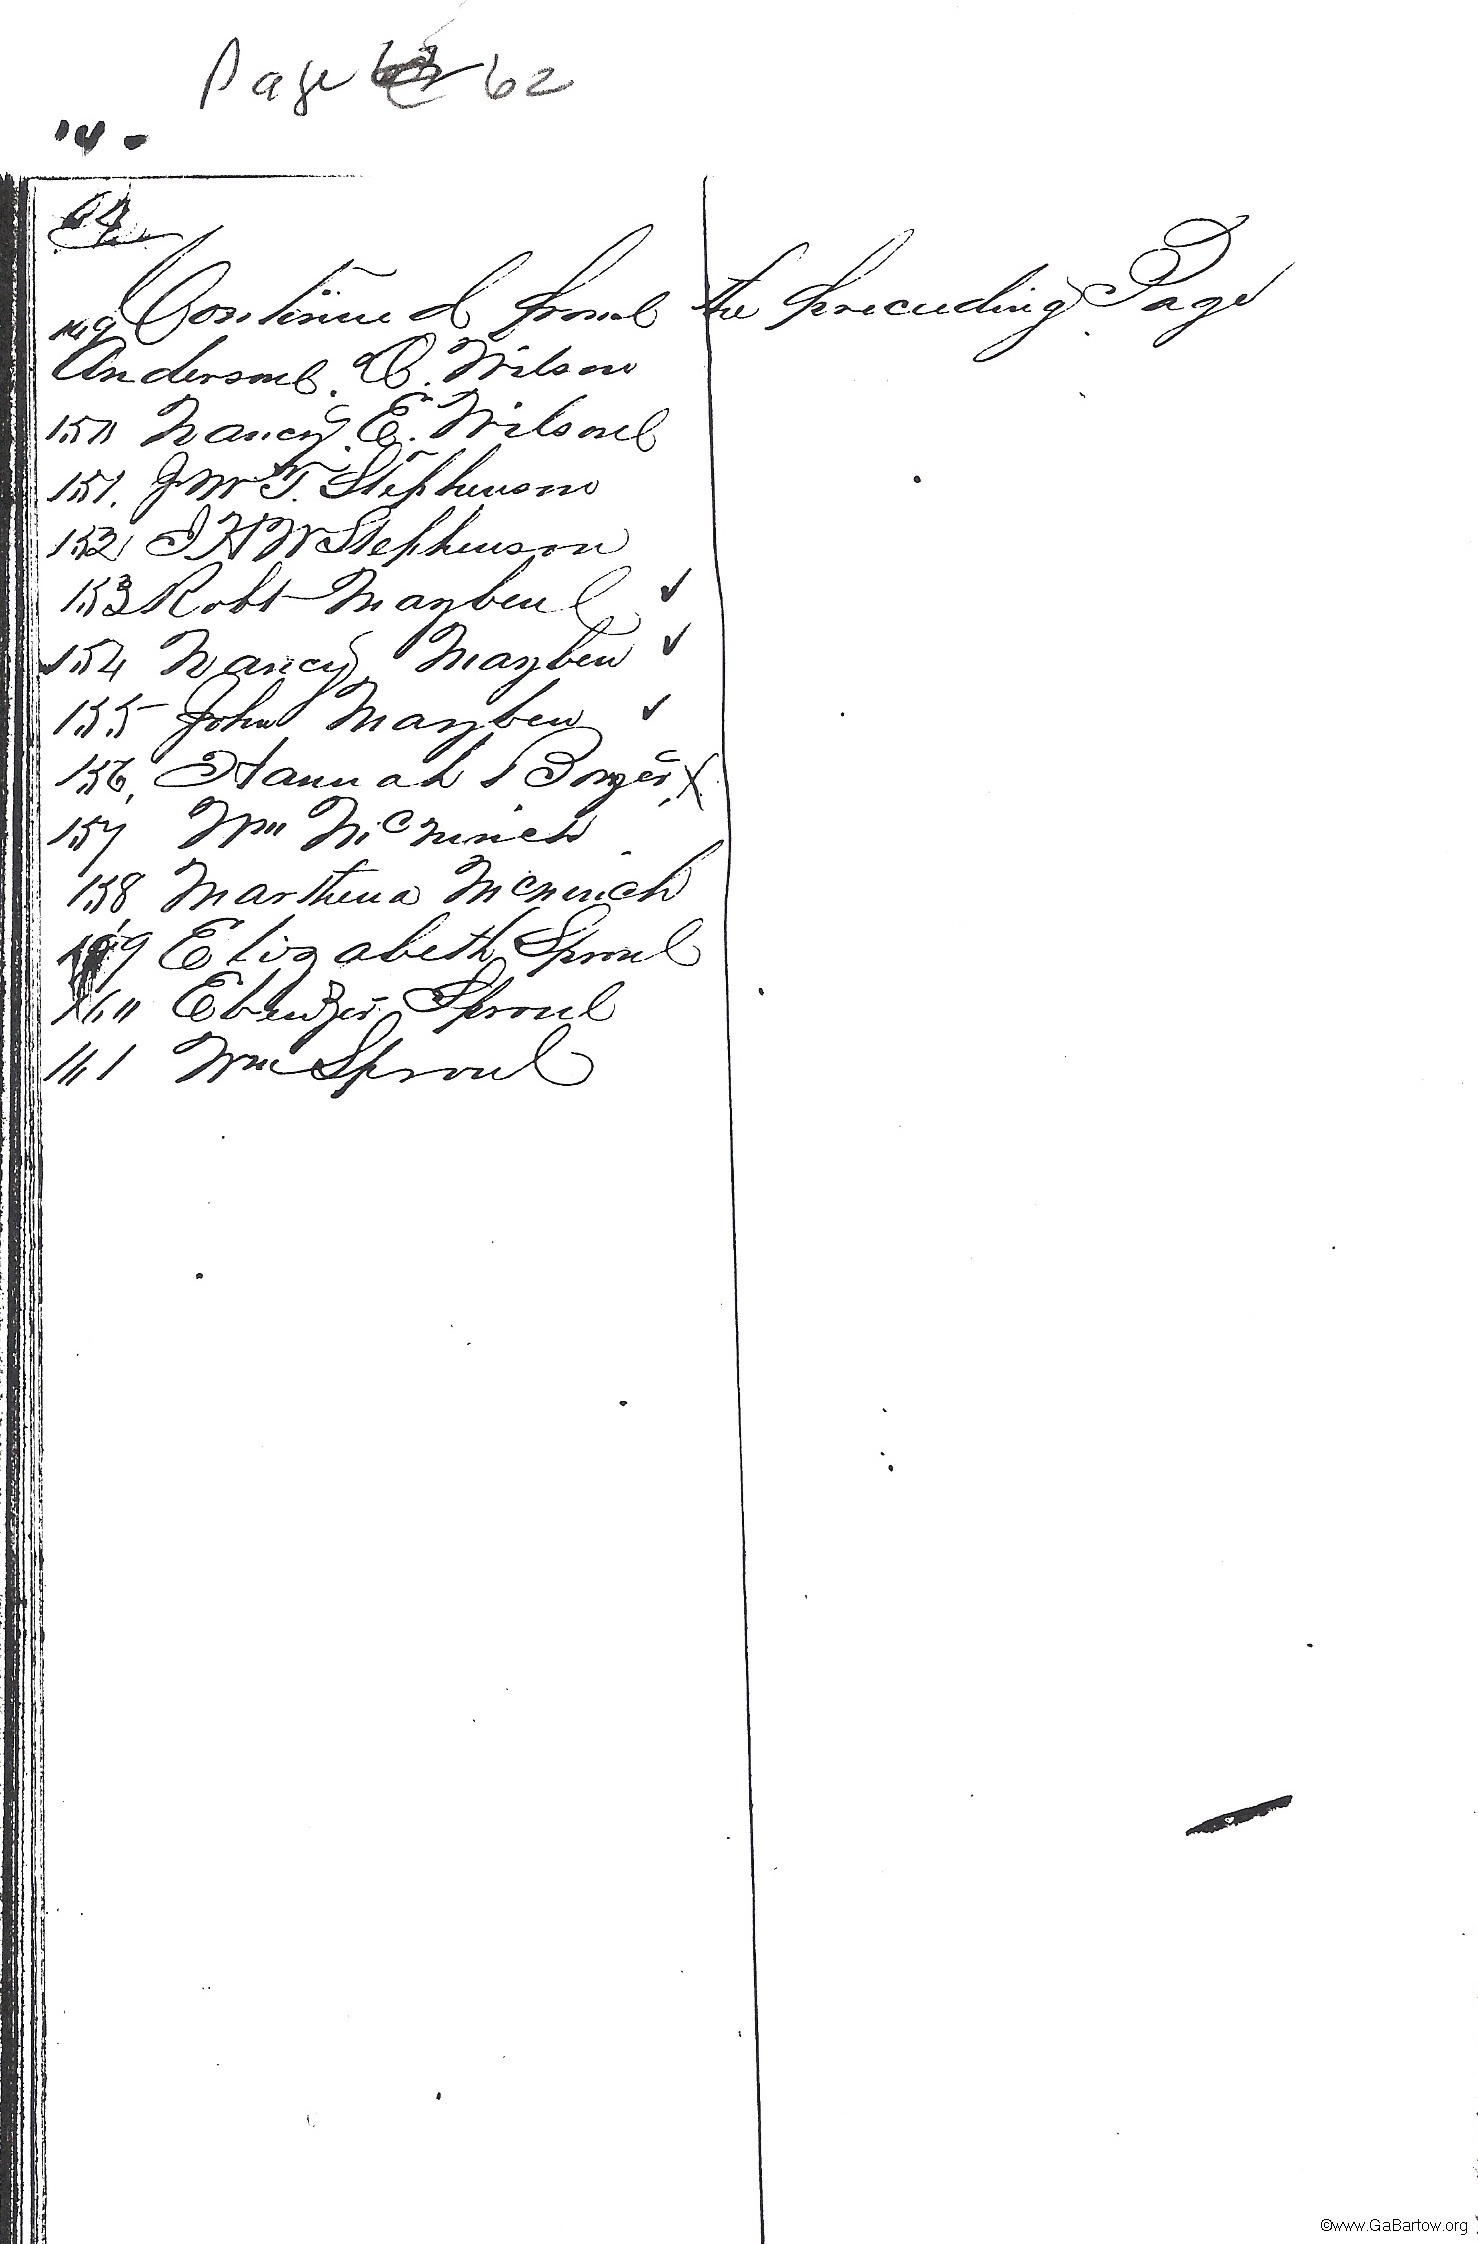 Page 62
64
Continued from the preceeding Page
149
Anderson. C. Wilson
150 Nancy. E. Wilson
151. J M T. Stephenson
152 J H W Stephenson
153 Robt Mayben ✓
154 Nancy Mayben ✓
155 John Mayben ✓
156, Hannah Boyer X
157 Wm McNinch
158 Marthena McNinch
159 Elizabeth Sproul
160 Ebenezer Sproul
161 Wm Sproul
©www.GaBartow.org